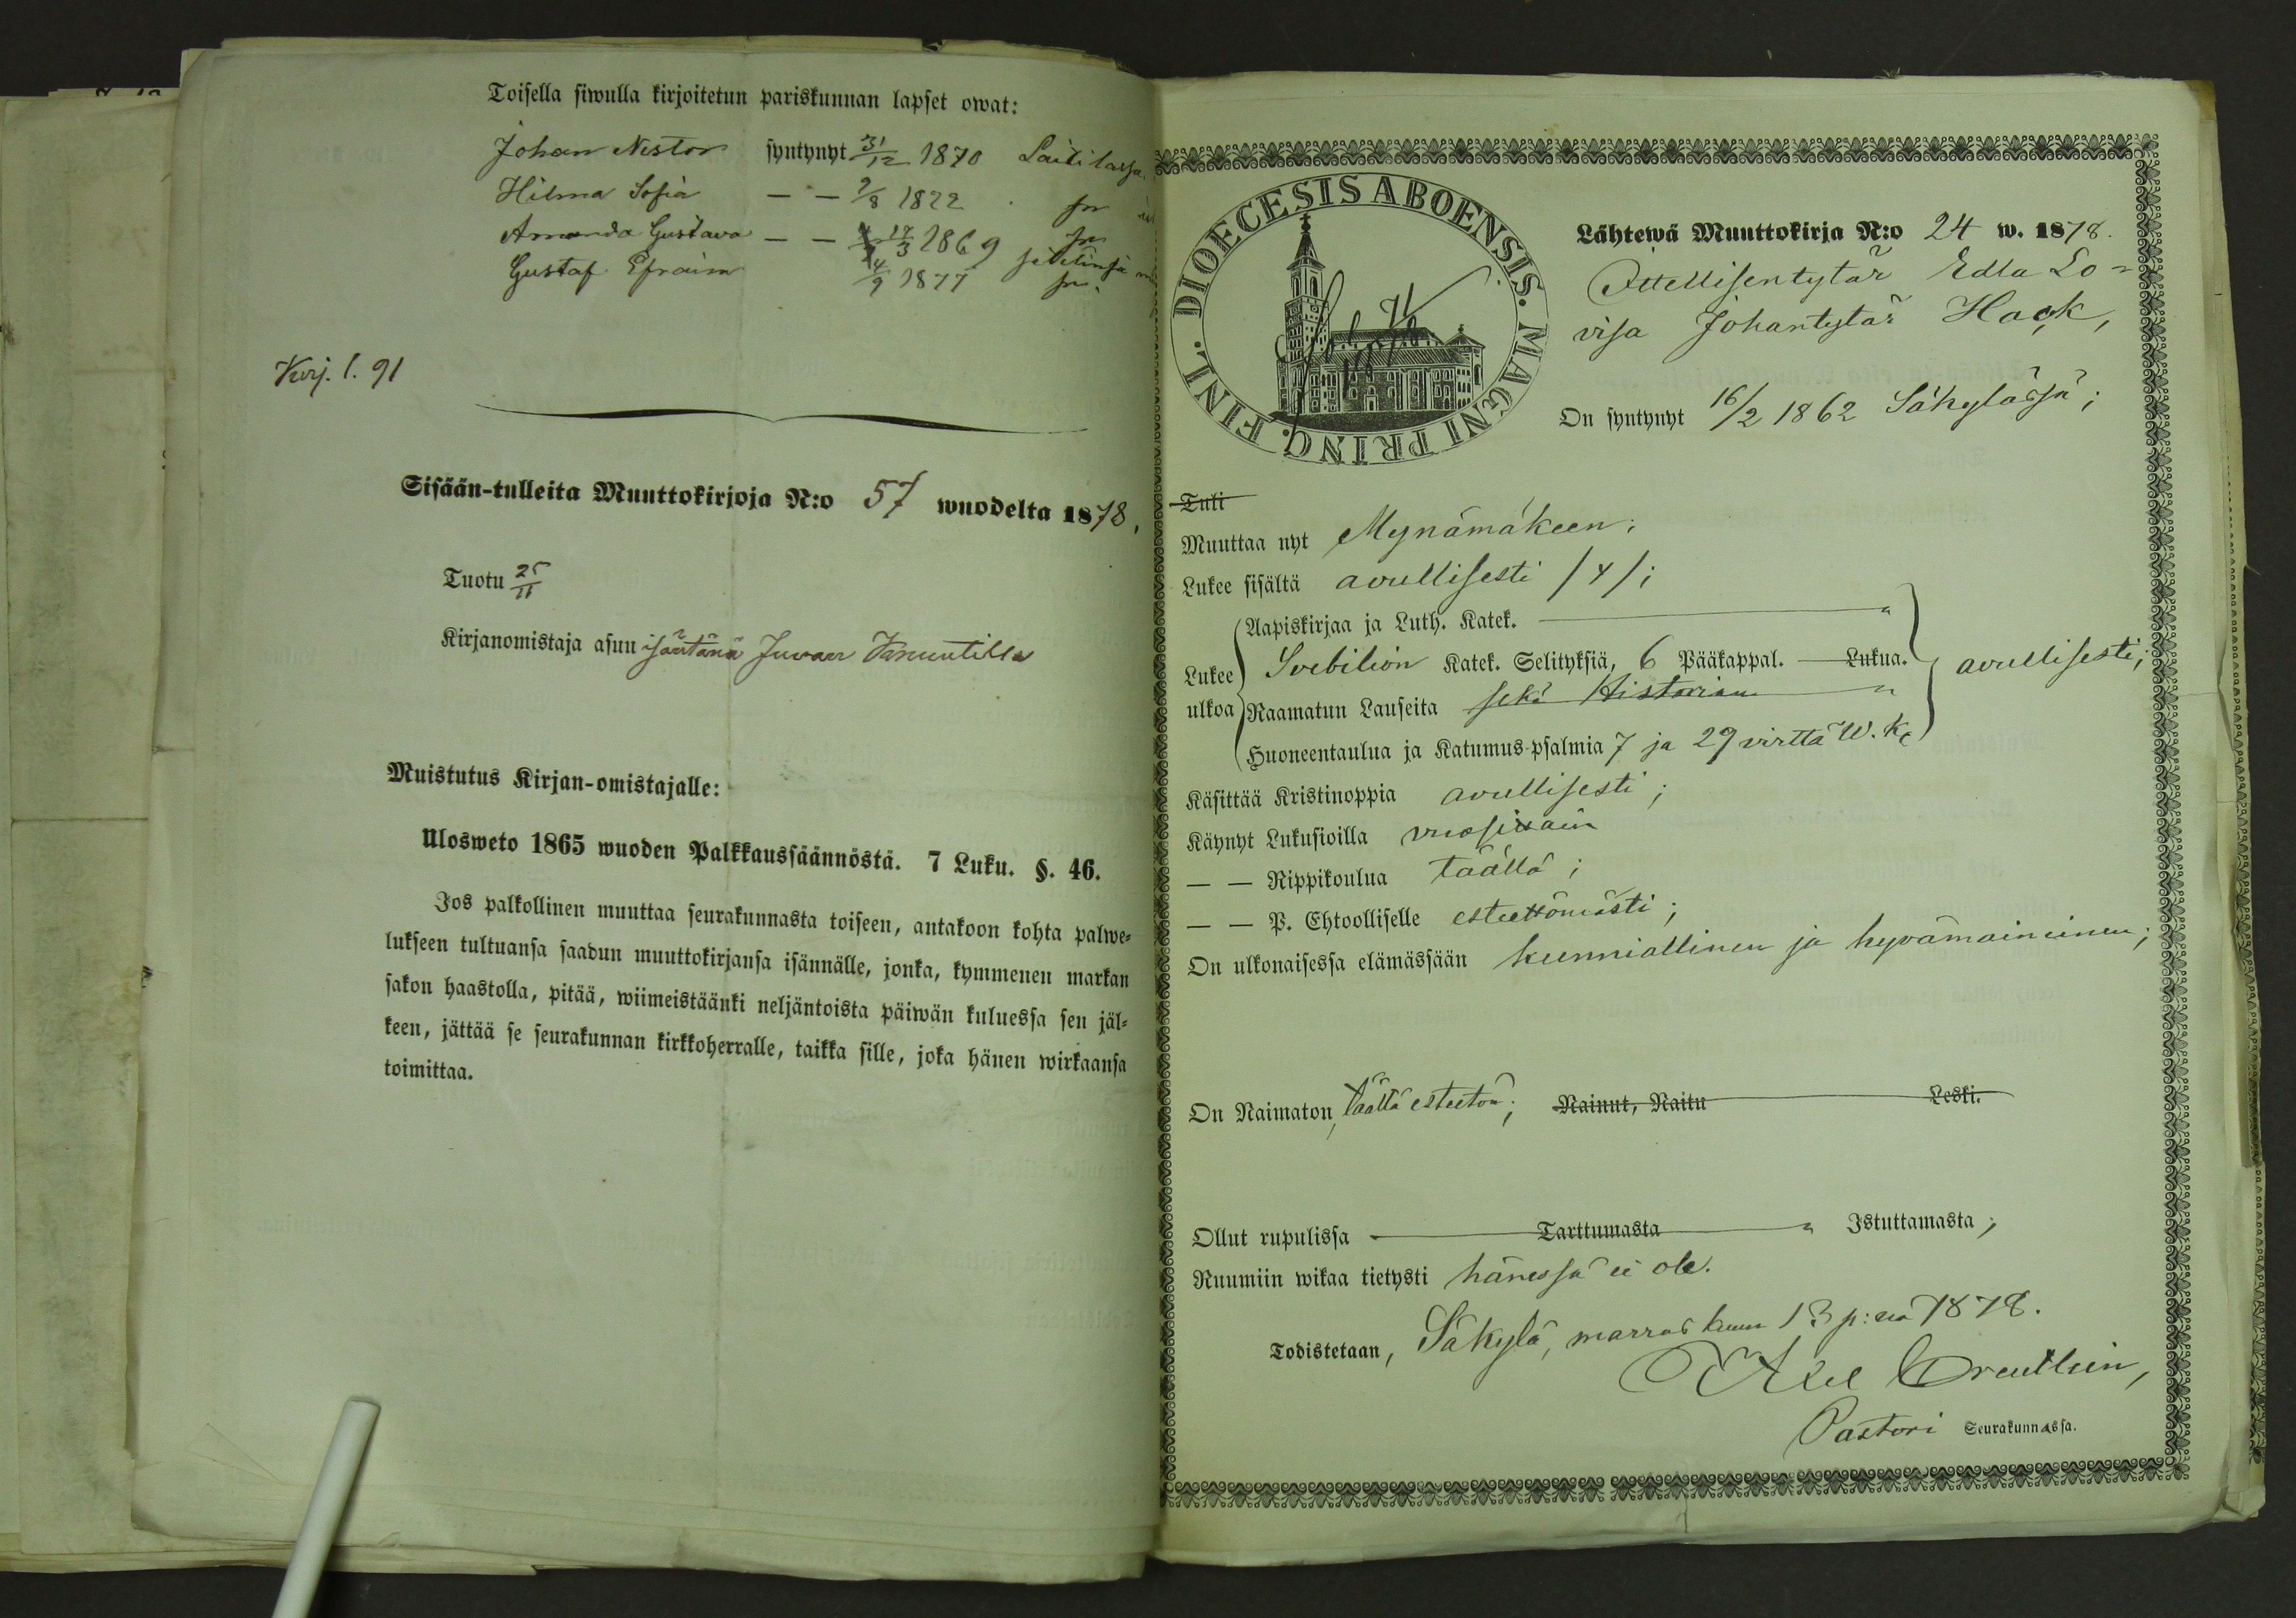 Toisella siwulla kirjoitetun pariskunnan lapset owat:
Johan Nestor syntynyt 31/12 1870 Laitilassa
Hilma Sofia — — 9/8 1872
Amanda Gustava — — 17/3 1869
Gustaf Efraim 4/9 1877
Kirj. l. 91
Sisään-tulleita Muuttokirjoja N:o 57 wuodelta 1878,
Tuotu 25/11
Kirjanomistaja asuu isäntänä
Muistutus Kirjan-omistajalle:
Ulosweto 1865 wuoden Palkkaussäännöstä. 7 Luku. §. 46.
Jos palkollinen muuttaa seurakunnasta toiseen, antakoon kohta palwe-
lukseen tultuansa saadun muuttokirjansa isännälle, jonka, kymmenen markan
sakon haastolla, pitää, wiimeistäänki neljäntoista päiwän kuluessa sen jäl-
keen, jättää se seurakunnan kirkkoherralle, taikka sille, joka hänen wirkaansa
toimittaa.
DIOECESIS ABOENSIS. MAGNI PRINC. FINL.
Lähtewä Muuttokirja N:o 24 w. 1878.
Ottellisentytär Edla Lo-
visa Johantytär Hack,
On syntynyt 16/2 1862 Säkylässä;
Tuli
Muuttaa nyt Mynämäkeen;
Lukee sisältä avullisesti /4/;
Lukee ulkoa
Aapiskirjaa ja Luth. Katek.
Svebilion Katek. Selityksiä, 6 Pääkappal. Lukua.
Raamatun Lauseita sekä Historian
avullisesti;
Huoneentaulua ja Katumus-psalmia 7 ja 29 virttä W. K.
Käsittää Kristinoppia avullisesti;
Käynyt Lukusioilla vuosittain
— — Rippikoulua täällä;
— — P. Ehtoolliselle esteettömästi;
On ulkonaisessa elämässään kunniallinen ja hyvämaineinen;
On Naimaton, täällä esteetön; Nainut, Naitu Leski.
Ollut rupulissa Tarttumasta Istuttamasta;
Ruumiin wikaa tietysti hänessä ei ole.
Todistetaan, Säkylä, marraskuun 13 p:nä 1878.
Axel
Pastori Seurakunnassa.